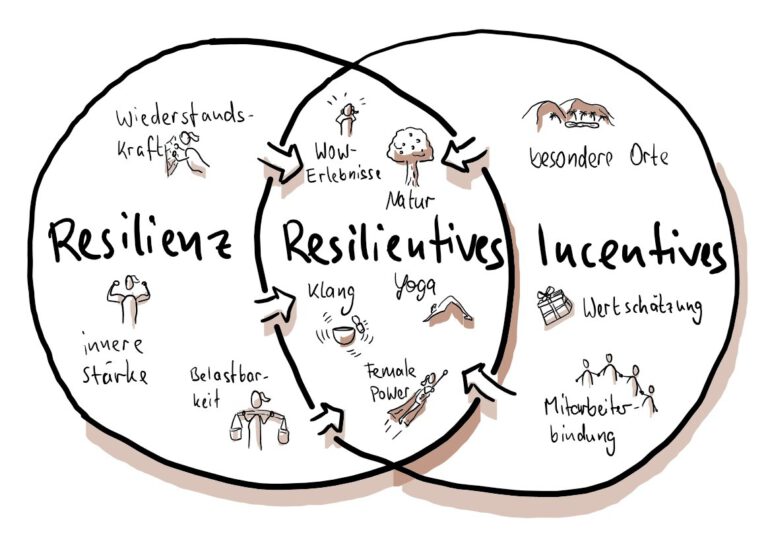 Wiederstands-
kraft
Resilienz
innere
stärke
Belastbar-
keit
Wow-
Erlebnisse
Natur
Resilientives
Klang
Yoga
Female
Power
besondere Orte
Incentives
Wertschätzung
Mitarbeiter-
bindung